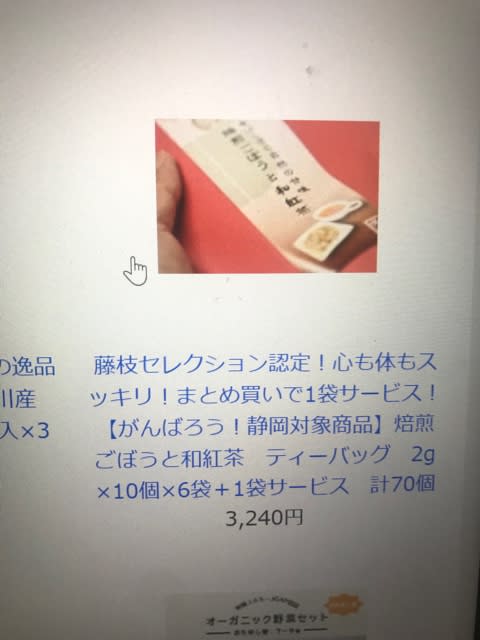 焙煎ごぼうと和紅茶
の逸品
川産
入×3
藤枝セレクション認定！心も体もス
ッキリ！まとめ買いで1袋サービス！
【がんばろう！静岡対象商品】焙煎
ごぼうと和紅茶　ティーバッグ　2g
×10個×6袋＋1袋サービス　計70個
3,240円
オーガニック野菜セット